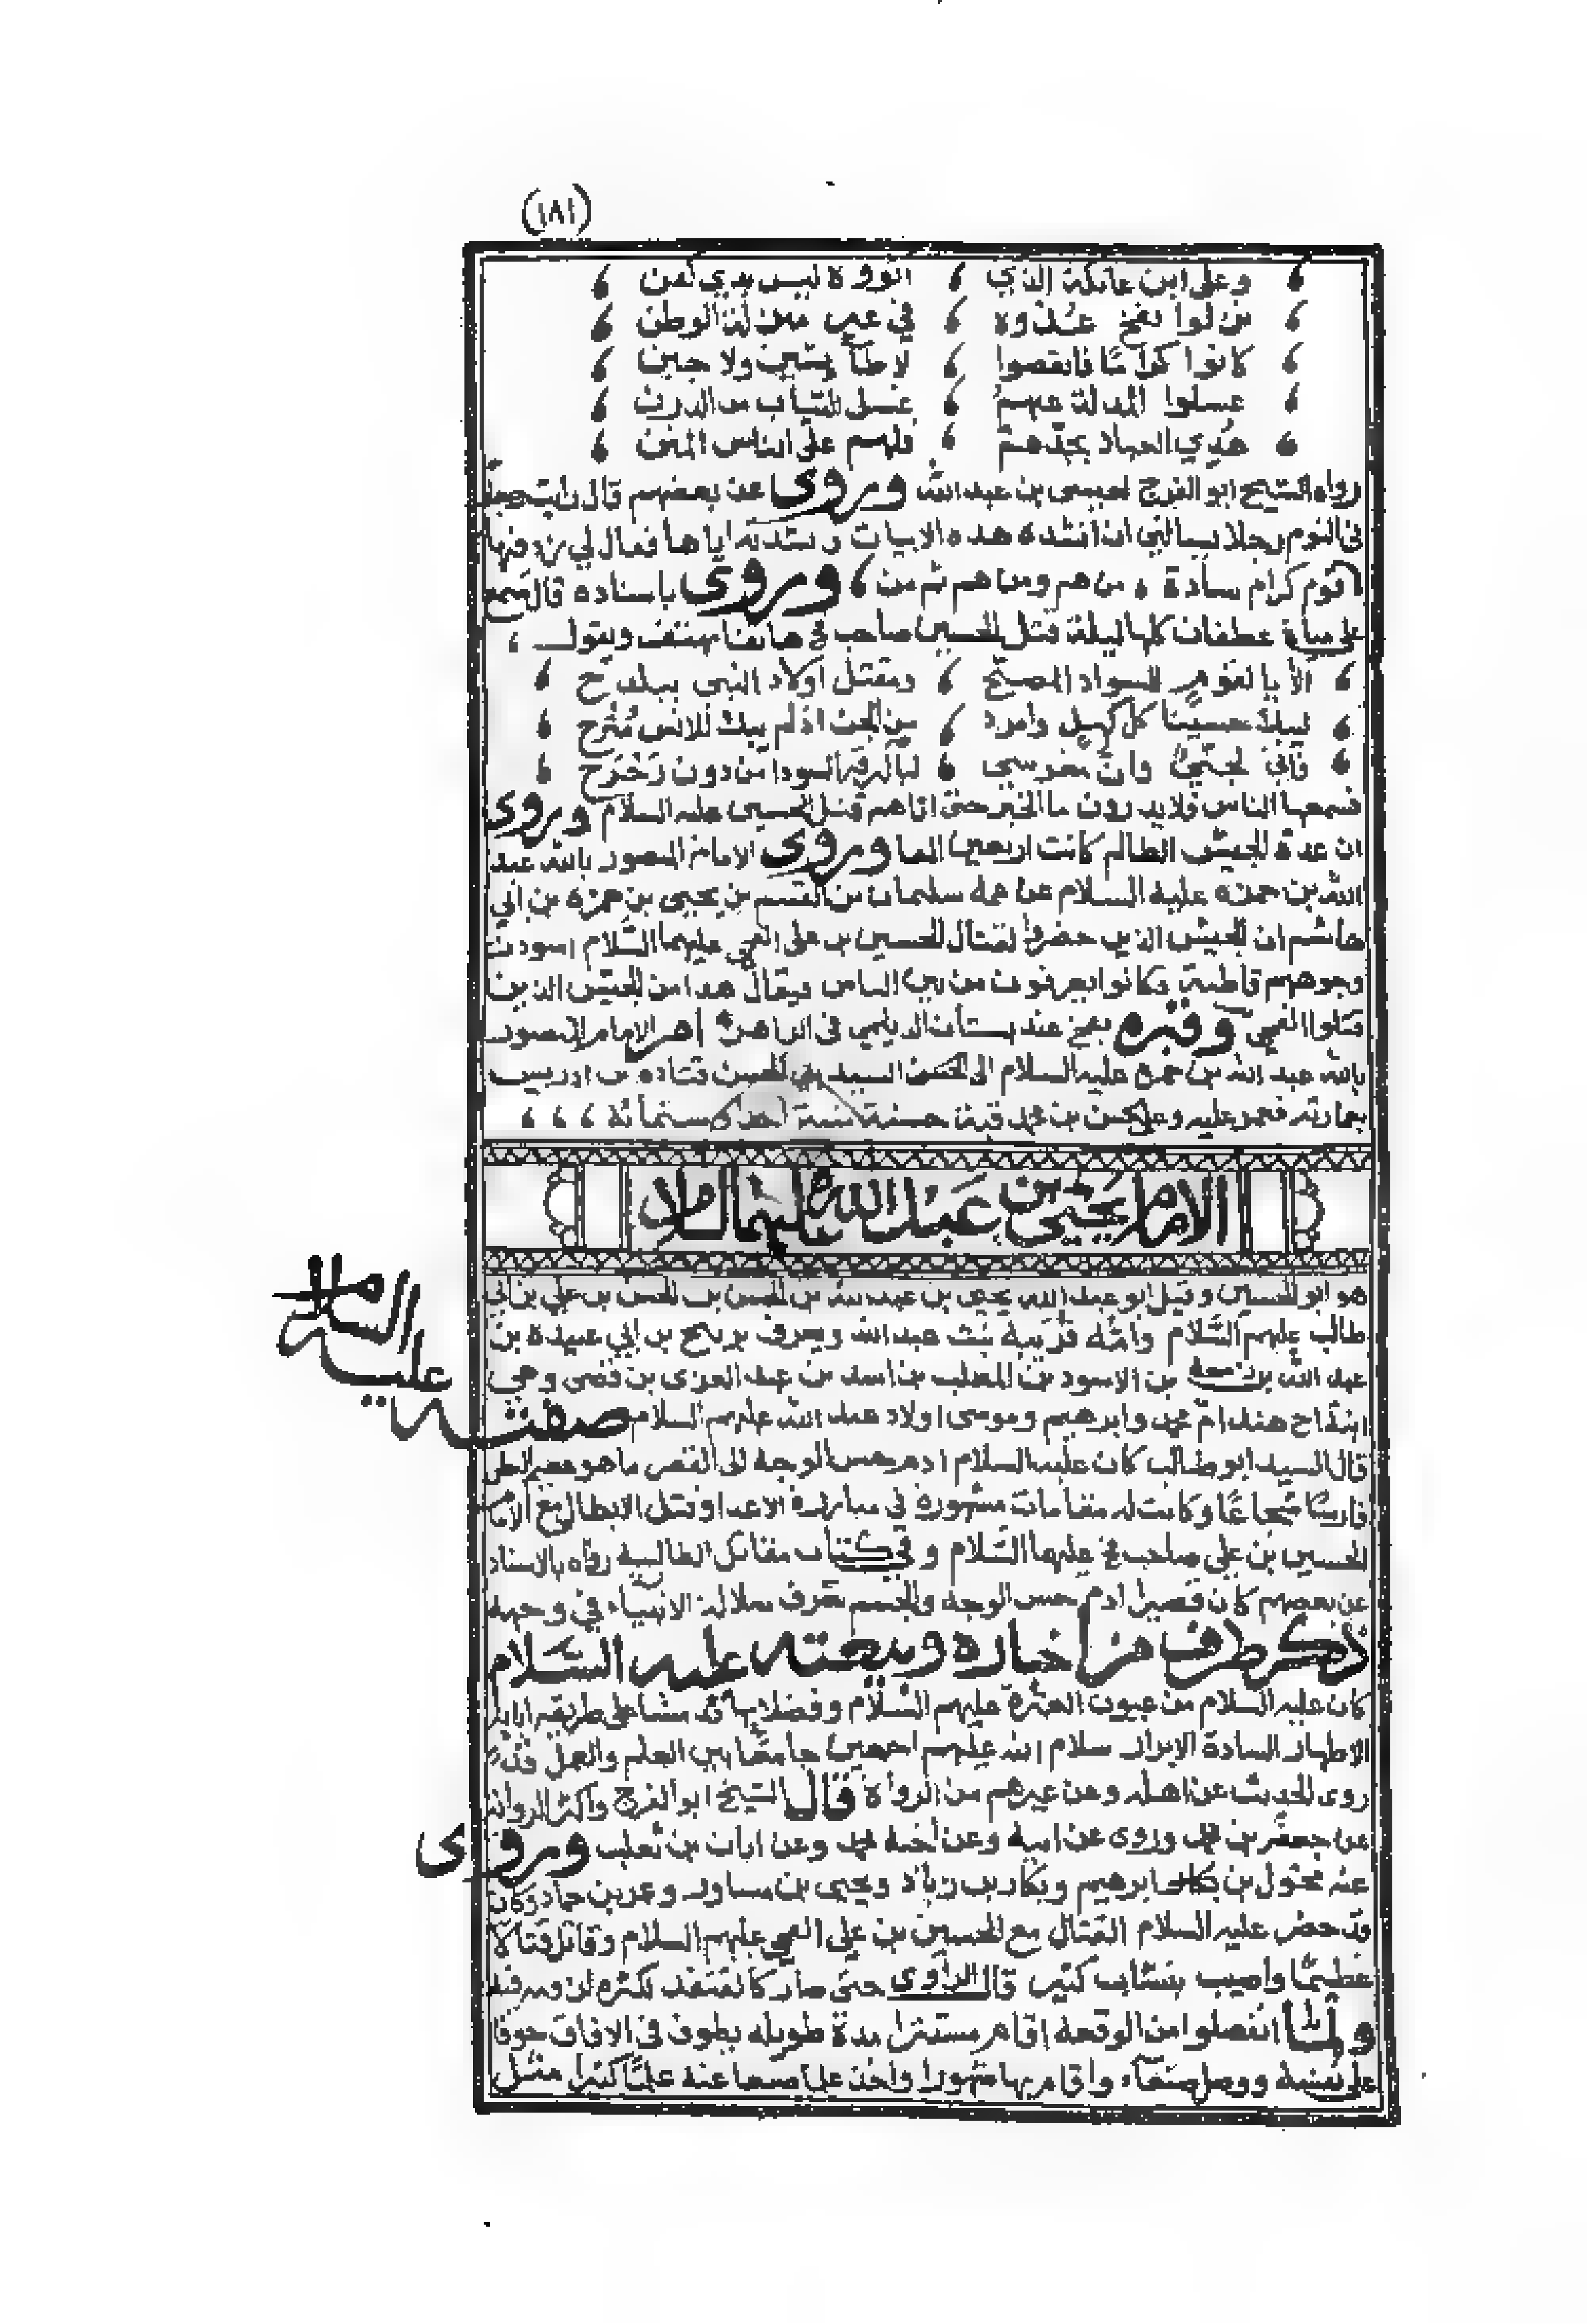 (١٨١)
وعلى ابن عاتكة الذي ، اثووه ليس بذي كفن
تركوا بفخ غدوة ، في غير منزلة الوطن
كانوا كراما فانقضوا ، لا طائشين ولا جبن
غسلوا المذلة عنهم ، غسل الثياب من الدرن
هدي العباد بجدهم ، فلهم على الناس المنن
رواه الشيخ ابو الفرج لعيسى بن عبد الله وروى عن بعضهم قال رايت
في النوم رجلا يسالني ان انشده هذه الابيات وانشدته اياها فقال لي زد فيها
قوم كرام سادة ، من هم ومن هم ثم من ، وروى باسناده قال سمع
على مياه غطفان كلها ليلة قتل الحسين صاحب فخ هاتفا يهتف ويقول
، الا يا لقوم للسواد المصبح ، ومقتل اولاد النبي ببلدح ،
، ليبك حسينا كل كهل وامرد ، من الجن اذ لم يبك للانس نوح ،
، فاني لجني وان معرسي ، لبالبرقة السودا من دون زحزح ،
فسمعها الناس لا يدرون ما الخبر حتى اتاهم قتل الحسين عليه السلام وروى
ان عدة الجيش الظالم كانت اربعين الفا وروى الامام المنصور بالله عبد
الله بن حمزه عليه السلام عن عمه سليمان بن القسم بن يحيى بن حمزه بن ابي
هاشم ان الجيش الذين حضروا لقتال الحسين بن علي الفخي عليهما السلام اسودت
وجوههم قاطبة وكانوا يعرفون من بين الناس فيقال هذا من الجيش الذين
قتلوا الفخي وقبره بفخ عند بستان الديلمي في الزاهر امر الامام المنصور
بالله عبد الله بن حمزة عليه السلام الى السيد بن الحسن قتاده بن ادريس
بعمارته فعمر عليه وعلى الحسن بن محمد قبة حسنة سنة احدى وستمائة ، ، ،
الامام يحيى بن عبد الله عليهما السلام
هو ابو الحسين وقيل ابو عبد الله يحيى بن عبد الله بن الحسن بن الحسن بن علي بن ابي
طالب عليهم السلام وامه قريبة بنت عبد الله ويعرف بربيح بن ابي عبيدة بن
عبد الله بن زمعة بن الاسود بن المطلب بن اسد بن عبد العزى بن قصي وهي
ابنة اخ هند ام محمد وابرهيم وموسى اولاد عبد الله عليهم السلام صفته عليه السلام
قال السيد ابو طالب كان عليه السلام ادم حسن الوجه الى القصر ما هو
فارسا شجاعا وكانت له مقامات مشهورة في مبارزة الاعدا وقتل الابطال مع الامام
الحسين بن علي صاحب فخ عليهما السلام وفي كتاب مقاتل الطالبية رواه بالاسناد
عن بعضهم كان قصيرا ادم حسن الوجه والجسم تعرف سلالة الانبياء في وجهه
ذكر طرف من اخباره وبيعته عليه السلام
كان عليه السلام من عيون العترة عليهم السلام وفضلائها قد نشا على طريقه ابائه
الاطهار السادة الابرار سلام الله عليهم اجمعين جامعا بين العلم والعمل
روى الحديث عن اهله وعن غيرهم من الرواة قال الشيخ ابو الفرج واكثر الرواية
عن جعفر بن محمد وروى عن ابيه وعن اخيه محمد وعن ابان بن تغلب وروى
عنه مخول بن ابرهيم وبكار بن زياد ويحيى بن مساور وعمر بن حماد وكان
قد حضر عليه السلام القتال مع الحسين بن علي الفخي عليهم السلام وقاتل قتالا
عظيما واصيب بنشاب كثير قال الراوي حتى صار كالقنفذ لكثرة
ولما انفصلوا من الوقعة اقام مستترا مدة طويله يطوف في الافاق خوفا
على نفسه ووصل صنعاء واقام بها شهورا واخذ علما صنعا عنه علما كثيرا مثل